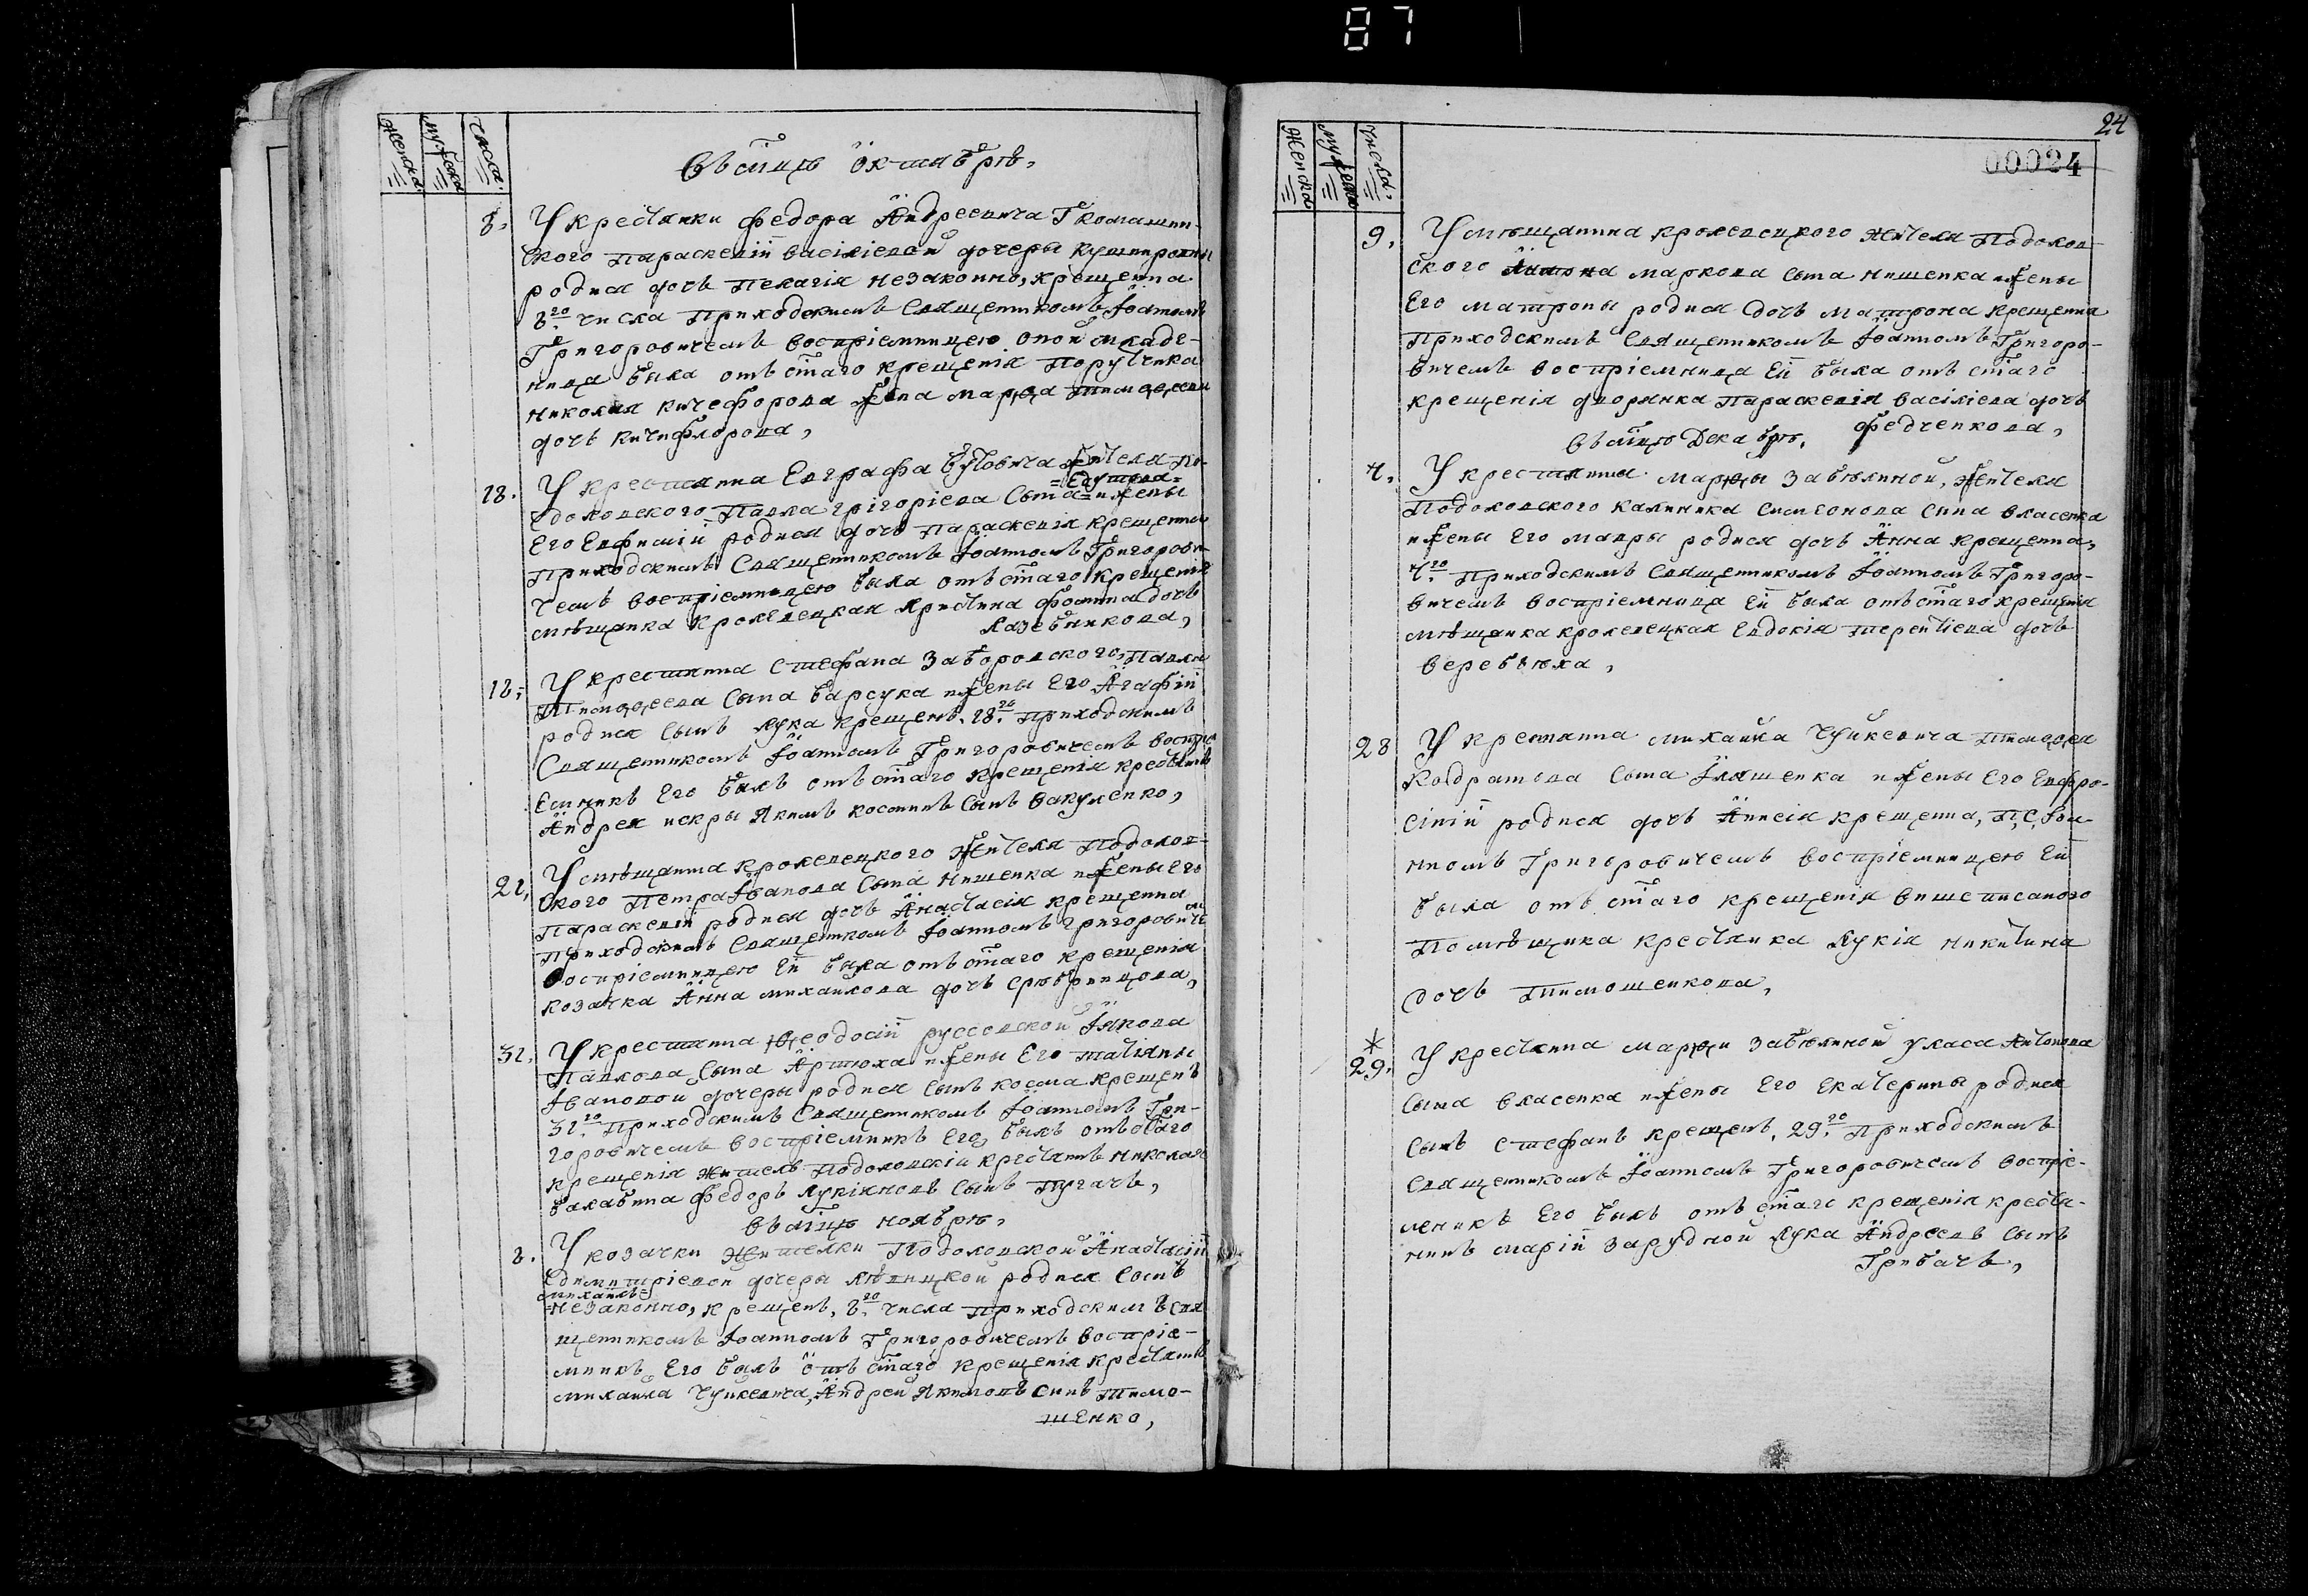 87
женска
муженска
числа
Въ мцѣ октябрѣ,
8. У крестянки Федора Андреевича Гкомашин-
ского Параскевiи Василiевой дочеры Кушнировны
родися дочь Пелагiя незаконно, крещенна
8го числа Приходскимъ Священникомъ Iоанномъ
Григоровичемъ воспрiемницею оной младе-
ница была отъ стаго крещенiя Поручика
Николая Кичефорова жена Марѳа Тимоѳеева
дочь Кичифорова,
18. У крестянина Евграфа Бутовича жителя По-
=Едутева=
доловского Павла Григорiева Сына и жены
Его Евфимiи родися дочь Параскевiя крещенна
Приходскимъ Священникомъ Iоанномъ Григорови-
чемъ воспрiемницею была отъ стаго крещенiя
мѣщанка Кролевецкая Христина Фомина дочь
Лазебникова,
18, У крестянина Стефана Забородского, Павла
Тимоѳеева Сына Барсука и жены Его Агафiи
родися Сынъ Лука крещенъ 18го Приходскимъ
Священникомъ Iоанномъ Григоровичемъ воспрi
емникъ Его былъ отъ стаго крещенiя крестянинъ
Андрея Искры Якимъ Костинъ Сынъ Вакуленко,
21, У мѣщанина Кролевецкого жителя Подолов-
ского Петра Iванова Сына Нищенка и жены Его
Параскевiи родися дочь Анастасiя крещенна
Приходскимъ Священникомъ Iоанномъ Григоровиче
воспрiемницею Ей была отъ стаго крещенiя
козачка Анна Михаилова дочь Срюбринцова,
31, У крестянина Ѳеодосiи Руссовской Iякова
Павлова Сына Артюха и жены Его Татiяны
Iвановой дочеры родися Сынъ Косма крещенъ
31го Приходскимъ Священникомъ Iоанномъ Гри-
горовичемъ воспрiемникъ Его, былъ отъ стаго
крещенiя житель Подоловскiй крестянинъ Николая
Балабина Федоръ Лукiяновъ Сынъ Пугачъ,
Въ мцѣ ноябрѣ,
8. У козачки жителки Подоловской Анастасiи
Димитрiевой дочеры Лѣвицкой родися Сынъ
=Михаилъ=
незаконно, крещенъ, 8го числа Приходскимъ Свя
щенникомъ Iоанномъ Григоровичемъ воспрiе-
мникъ Его былъ отъ стаго крещенiя крестянинъ
Михаила Чуйкевича, Андрей Якимовъ Сынъ Тимо-
шенко,
24
00024
женска
муженска
числа
9. У мѣщанина кролевецкого жителя Подолов-
ского Антона Маркова Сына Нищенка и жены
Его Матроны родися дочь Матрона крещенна
Приходскимъ Священникомъ Iоанномъ Григоро-
вичемъ воспрiемница Ей была отъ стаго
крещенiя дворянка Параскевiя Василiева дочь
Федченкова,
Въ мцѣ Декабрѣ,
4, У крестянина Марѳы Забѣлиной, жителя
Подоловского Калиника Симеонова Сина Власенка
и жены Его Мавры родися дочь Анна крещенна,
4го Приходскимъ Священникомъ Iоанномъ Григоро-
вичемъ воспрiемница Ей была отъ стаго крещенiя
мѣщанка кролевецкая Евдокiя Терентiева дочь
Веребѣюха,
28 У крестянина Михаила Чуйкевича Тимоѳея
Кондратова Сына Iляшенка и жены Его Евфро-
сiнiи родися дочь Анисiя крещенна, П, С, Iоа-
нномъ Григоровичемъ воспрiемницею Ей
была отъ стаго крещенiя вишеписаного
Помѣщика крестянка Лукiя Никитина
дочь Тимошенкова,
*
29. У крестянина Марѳи Забѣлиной Уласа Антонова
Сына Власенка и жены Его Екатерины родися
Сынъ Стефанъ крещенъ, 29го Приходскимъ
Священникомъ Iоанномъ Григоровичемъ воспрiе-
мникъ Его былъ отъ стаго крещенiя крестя-
нинъ Марiи Зарудной Лука Андреевъ Сынъ
Грибачъ,